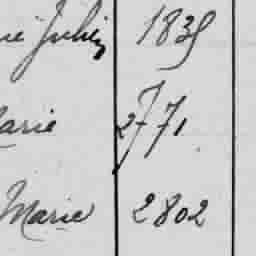 Julien 1835
Marie 2771
Marie 2802